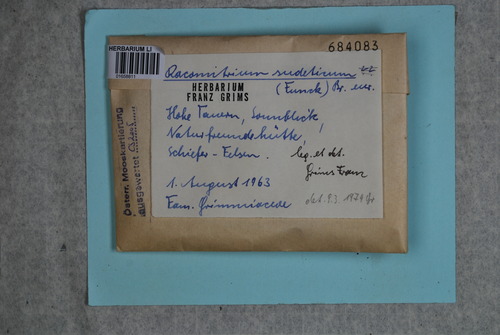 684083
HERBARIUM LI
Racomitrium sudeticum
(Funck) Br. eur.
HERBARIUM
FRANZ GRIMS
Hohe Tauern, Sonnblick
Naturfreundehütte,
Schiefer-Felsen.
leg. et det.
Grims Franz
1. August 1963
Fam. Grimmiaceae
Österr. Mooskartierung
ausgewertet